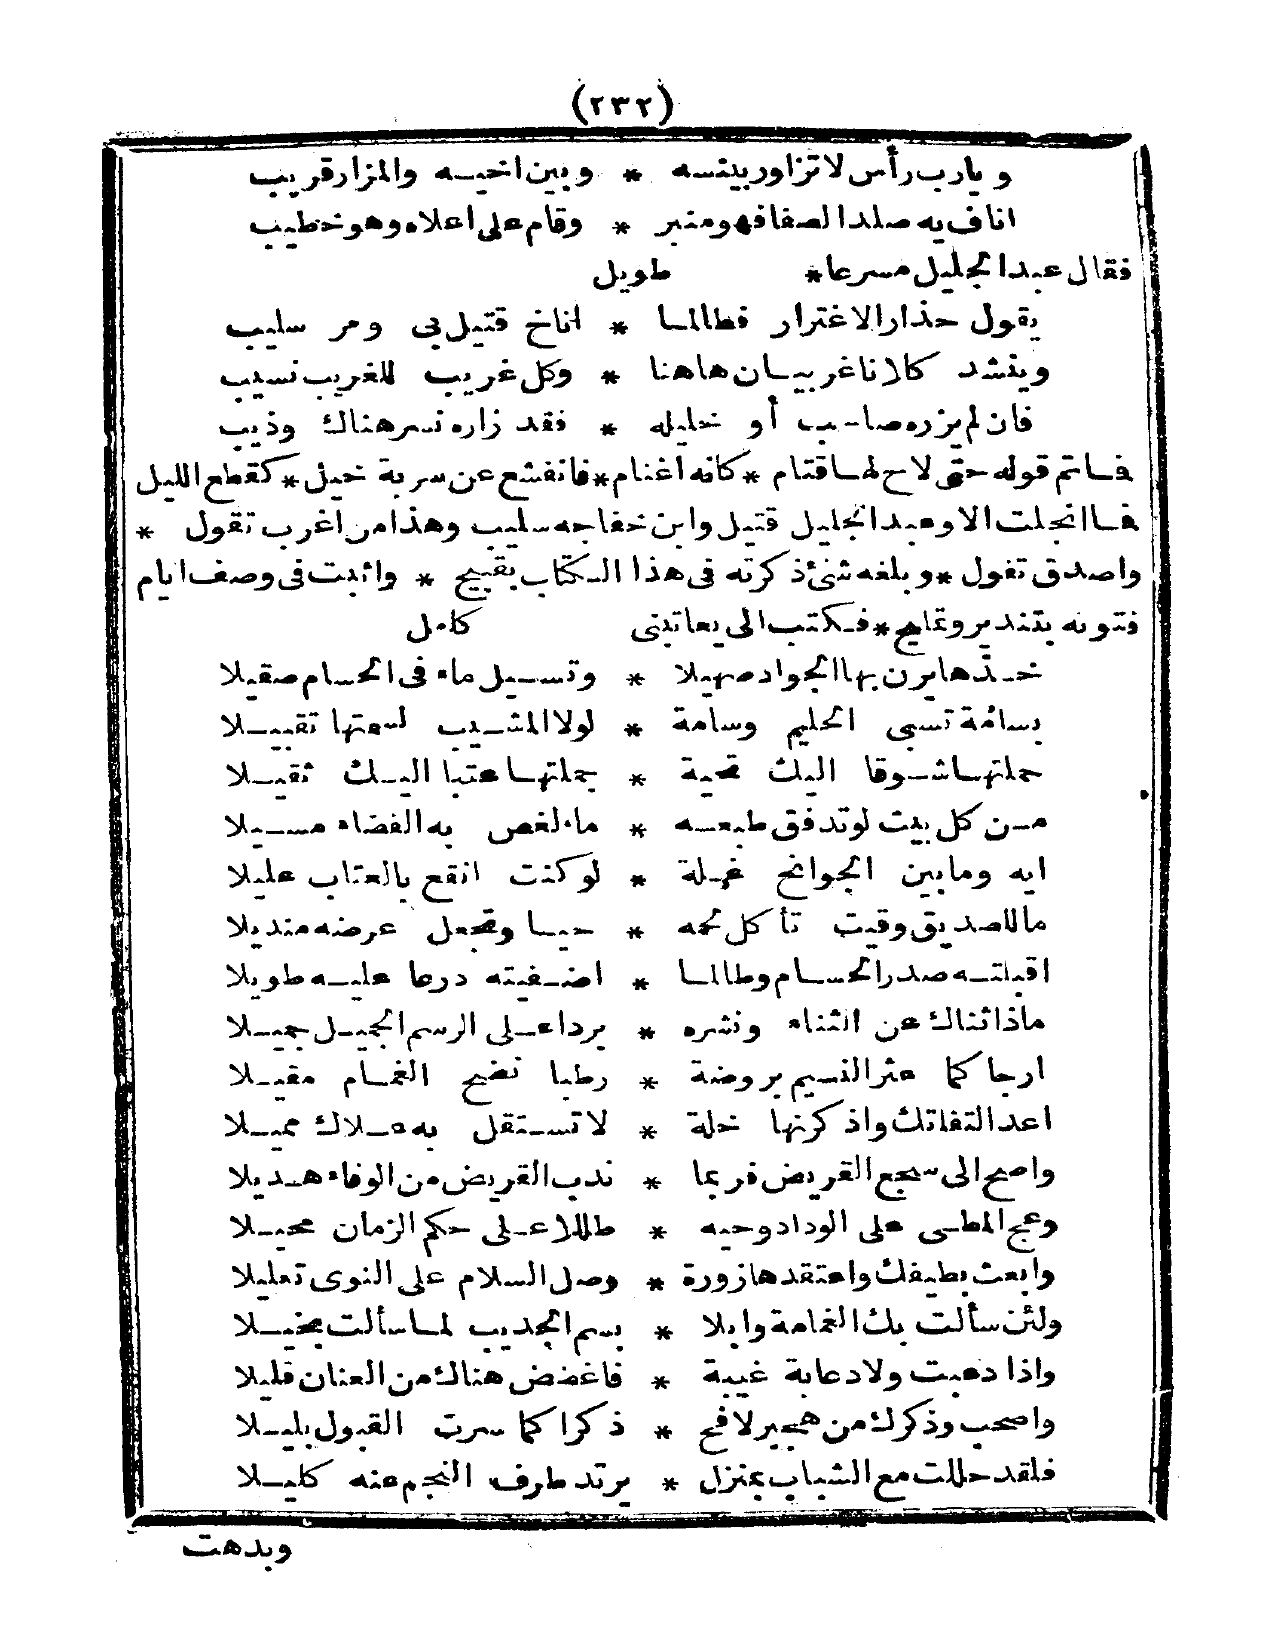 (٢٣٢)
ويارب رأس لا تزاور بينسه * وبين اخيسه والمزار قريب
اناف به صلد الصفا فهو منبر * وقام على اعلاه وهو خطيب
فقال عبد الجليل مسرعا * طويل
يقول حذار الاغترار فطالما * اناخ قتيل بى ومر سليب
وينشد كلانا غريبان هاهنا * وكل غريب للغريب نسيب
فان لم يزره صاحب أو خليله * فقد زاره نسر هناك وذيب
فما تم قوله حتى لاح لهما قتام * كانه أغنام * فانقشع عن سربة خيل * كقطع الليل
فما انجلت الا وعبد الجليل قتيل وابن خفاجه سليب وهذا من اغرب تقول *
واصدق تفول * وبلغه شئ ذكرته فى هذا الكتاب بقبيح * واثبت فى وصف ايام
فتوته بتنديرو تمليح * فكتب الى يعاتبنى كامل
خذها يرن بها الجواد صهيلا * وتسيل ماء فى الحسام صقيلا
بسامة تسبى الحليم وسامة * لولا المشيب لسمتها تقبيلا
حملتها شوقا اليك تحية * حملتها عتبا اليك ثقيلا
من كل بيت لو تدفق طبعه * ماء لغص به الفضاء مسيلا
ايه وما بين الجوانح غلة * لو كنت انقع بالعتاب غليلا
ما للصديق وقيت تأكل لحمه * حيا وتجعل عرضه منديلا
اقبلته صدر الحسام وطالما * اضفيته درعا عليه طويلا
ماذا ثناك عن الثناء ونشره * بردا على الرسم الجميل جميلا
ارجا كما عثر النسيم بروضة * رطبا نضح الغمام مقيلا
اعد التفاتك واذكرنها خلة * لا تستقل به علاك مميلا
واصخ الى سجع القريض فربما * ندب القريض من الوفاء هديلا
وعج المطى على الوداد وحيه * طللا على حكم الزمان محيلا
وابعث بطيفك واعتقدها زورة * وصل السلام على النوى تعليلا
ولئن سألت بك الغمامة وابلا * بسم الجديب لما سألت مخيلا
واذا دعبت ولا دعابة غيبة * فاغضض هناك من العنان قليلا
واصحب وذكرك من هجير لافح * ذكرا كما سرت القبول بليلا
فلقد حللت مع الشباب بمنزل * يرتد طرف النجم عنه كليلا
وبدهت